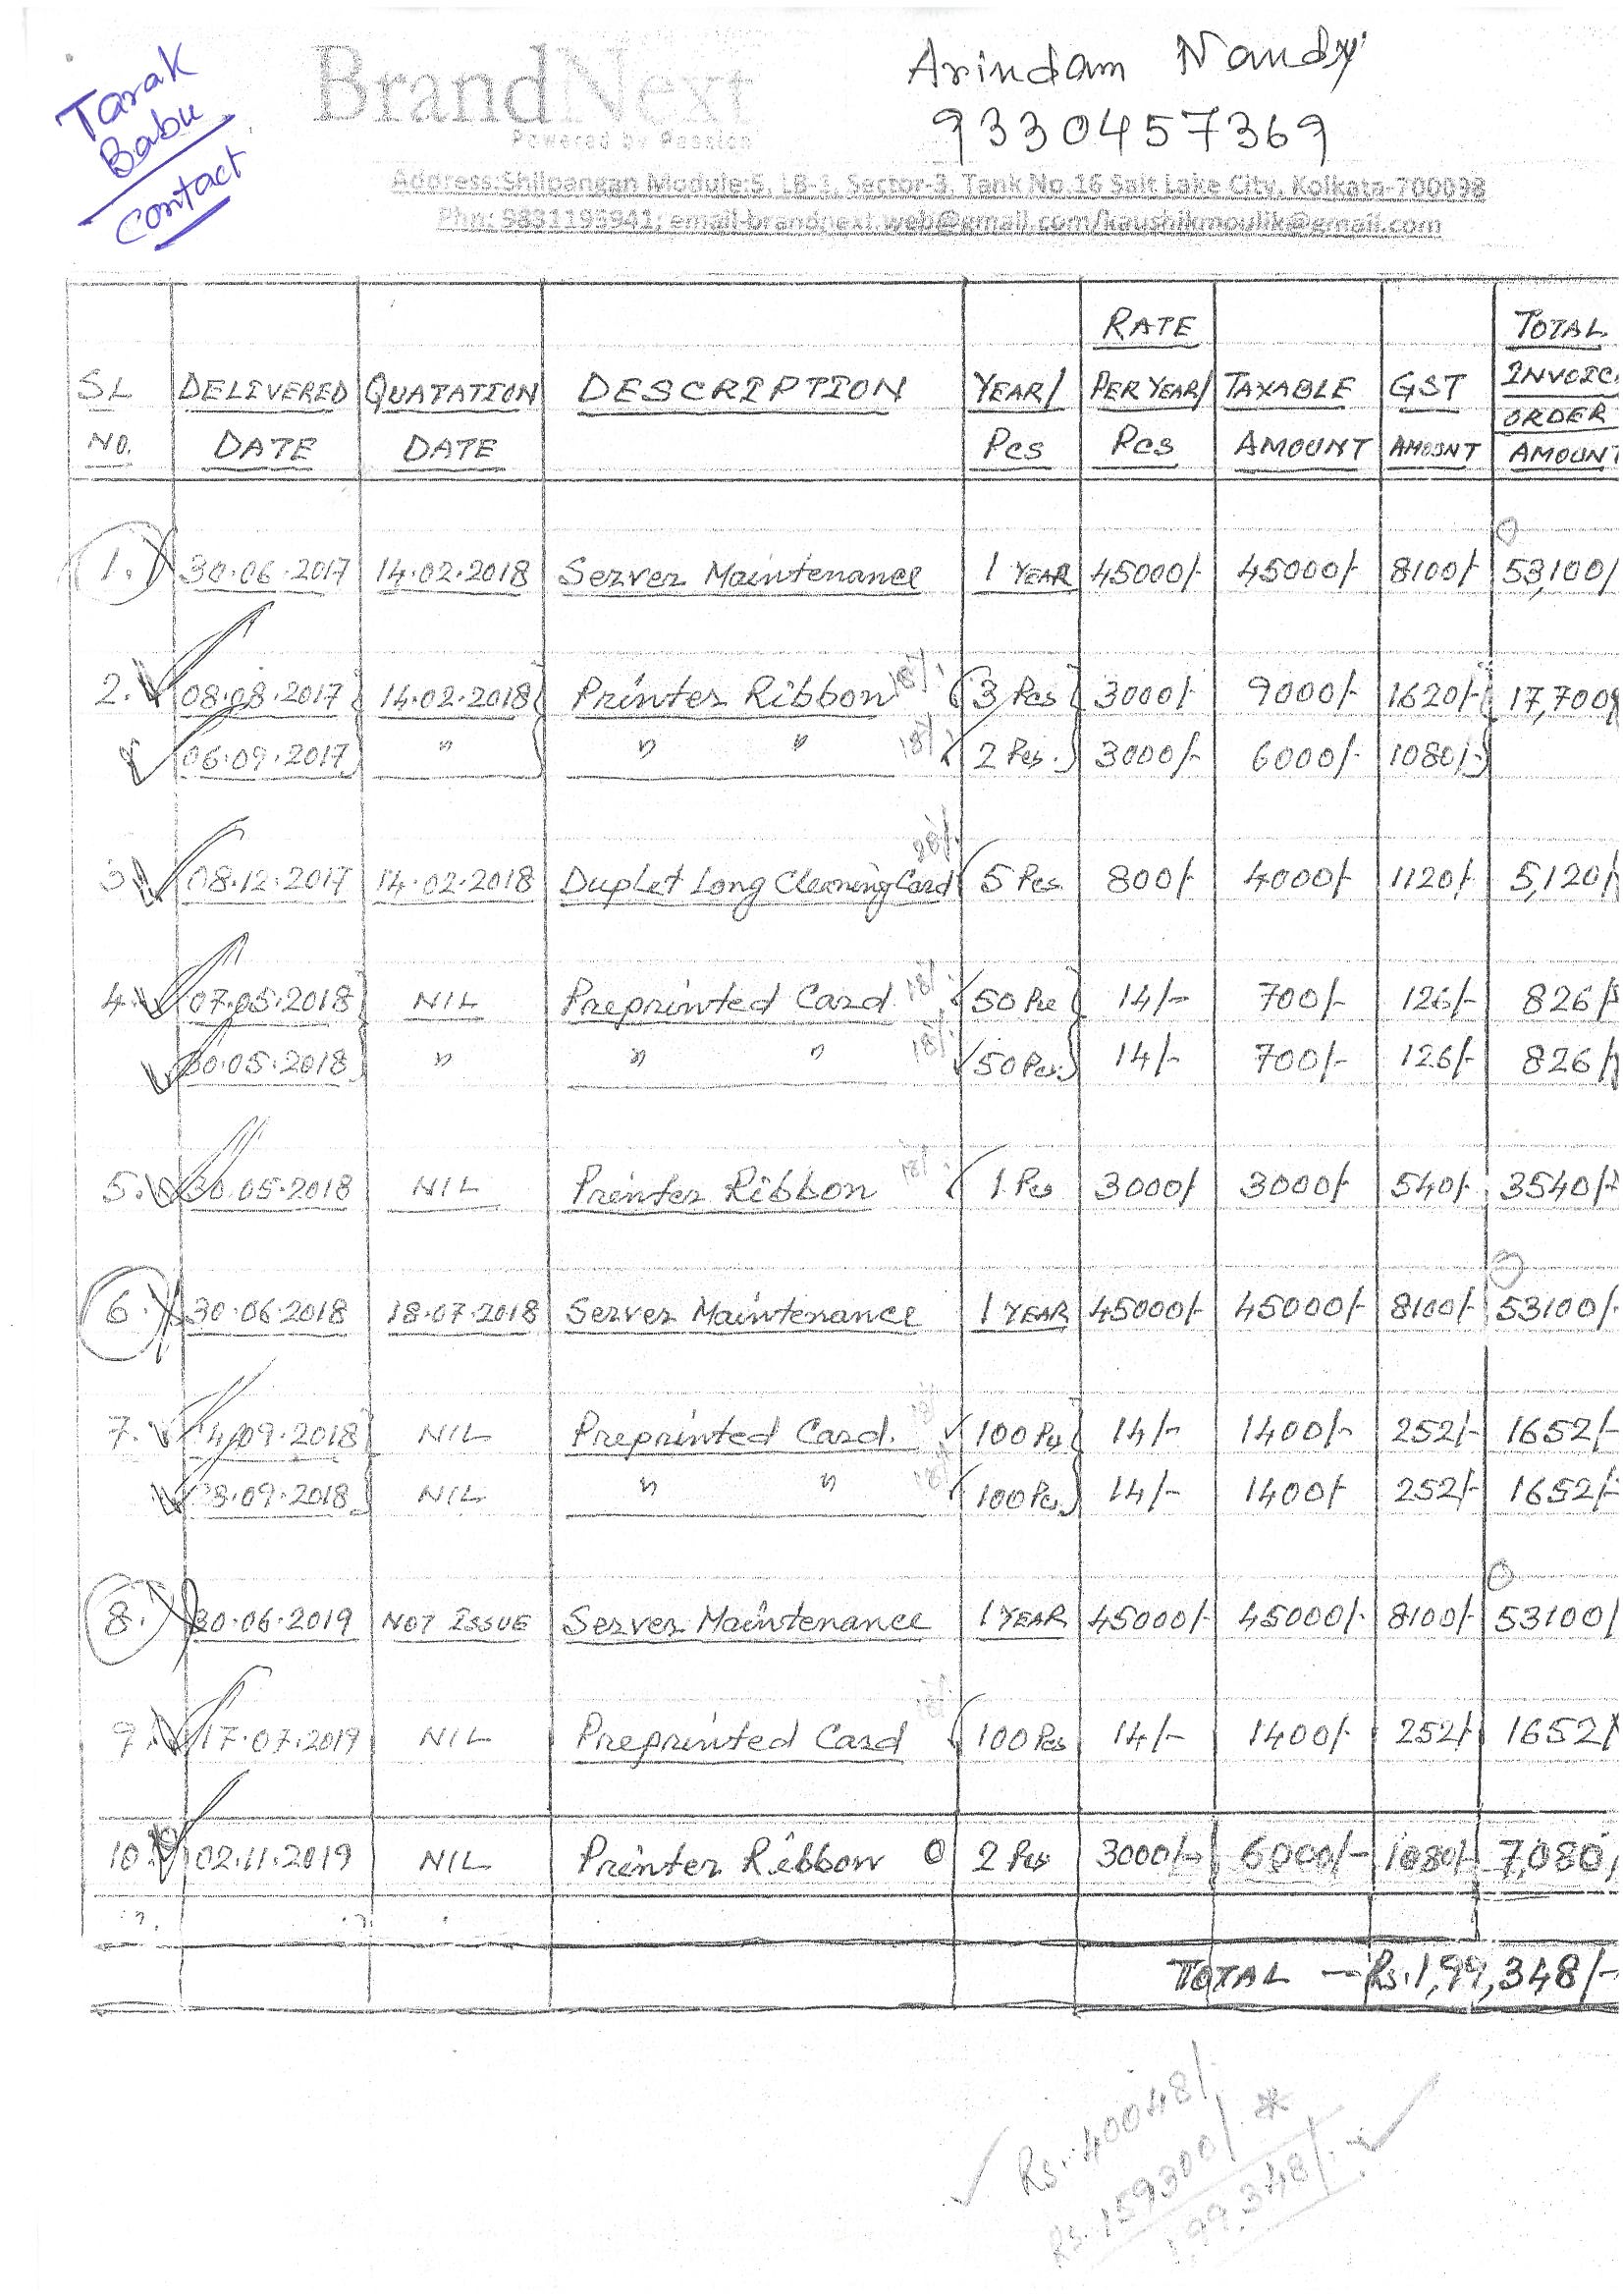 Tarak
Babu
Contact
BrandNext
Powered by Passion
Arindam Nandy
9330457369
Address:Shilpangan Module:5, LB-1, Sector-3, Tank No.16 Salt Lake City, Kolkata-700098
Phn: 9831195941; email-brandnext.web@gmail.com/kaushikmoulik@gmail.com
SL NO. DELIVERED DATE QUATATION DATE DESCRIPTION YEAR/ Pcs RATE PER YEAR/ Pcs TAXABLE AMOUNT GST AMOUNT TOTAL INVOIC ORDER AMOUNT
1. 30.06.2017 14.02.2018 Server Maintenance 1 YEAR 45000/- 45000/- 8100/- 53,100/
2. 08.08.2017 14.02.2018 Printer Ribbon 18%. 3 Pcs 3000/- 9000/- 1620/- 17,700/
06.09.2017 " " " 18%. 2 Pcs. 3000/- 6000/- 1080/-
3. 08.12.2017 14.02.2018 Duplet Long Cleaning Card 28%. 5 Pcs. 800/- 4000/- 1120/- 5,120/
4. 07.05.2018 NIL Preprinted Card. 18%. 50 Pcs 14/- 700/- 126/- 826/
30.05.2018 " " " 18%. 50 Pcs. 14/- 700/- 126/- 826/
5. 30.05.2018 NIL Printer Ribbon 18%. 1 Pcs 3000/- 3000/- 540/- 3540/-
6. 30.06.2018 18.07.2018 Server Maintenance 1 YEAR 45000/- 45000/- 8100/- 53100/-
7. 14.09.2018 NIL Preprinted Card. 18%. 100 Pcs 14/- 1400/- 252/- 1652/-
28.09.2018 NIL " " 18%. 100 Pcs. 14/- 1400/- 252/- 1652/-
8. 30.06.2019 NOT ISSUE Server Maintenance 1 YEAR 45000/- 45000/- 8100/- 53100/
9. 17.07.2019 NIL Preprinted Card 18%. 100 Pcs 14/- 1400/- 252/- 1652/
10. 02.11.2019 NIL Printer Ribbon 0 2 Pcs 3000/- 6000/- 1080/- 7,080/
TOTAL — Rs. 1,99,348/-
Rs. 40048/.
Rs. 159300/. *
199,348/.